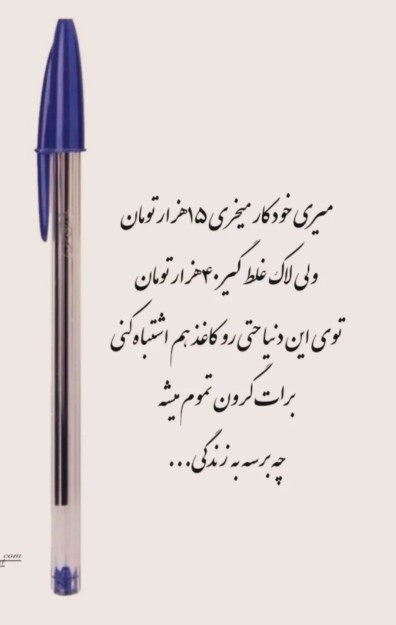 میری خودکار میخری ۱۵هزار تومان
ولی لاک غلط گیر ۴۰هزار تومان
توی این دنیا حتی رو کاغذ هم اشتباه کنی
برات گرون تموم میشه
چه برسه به زندگی...
com